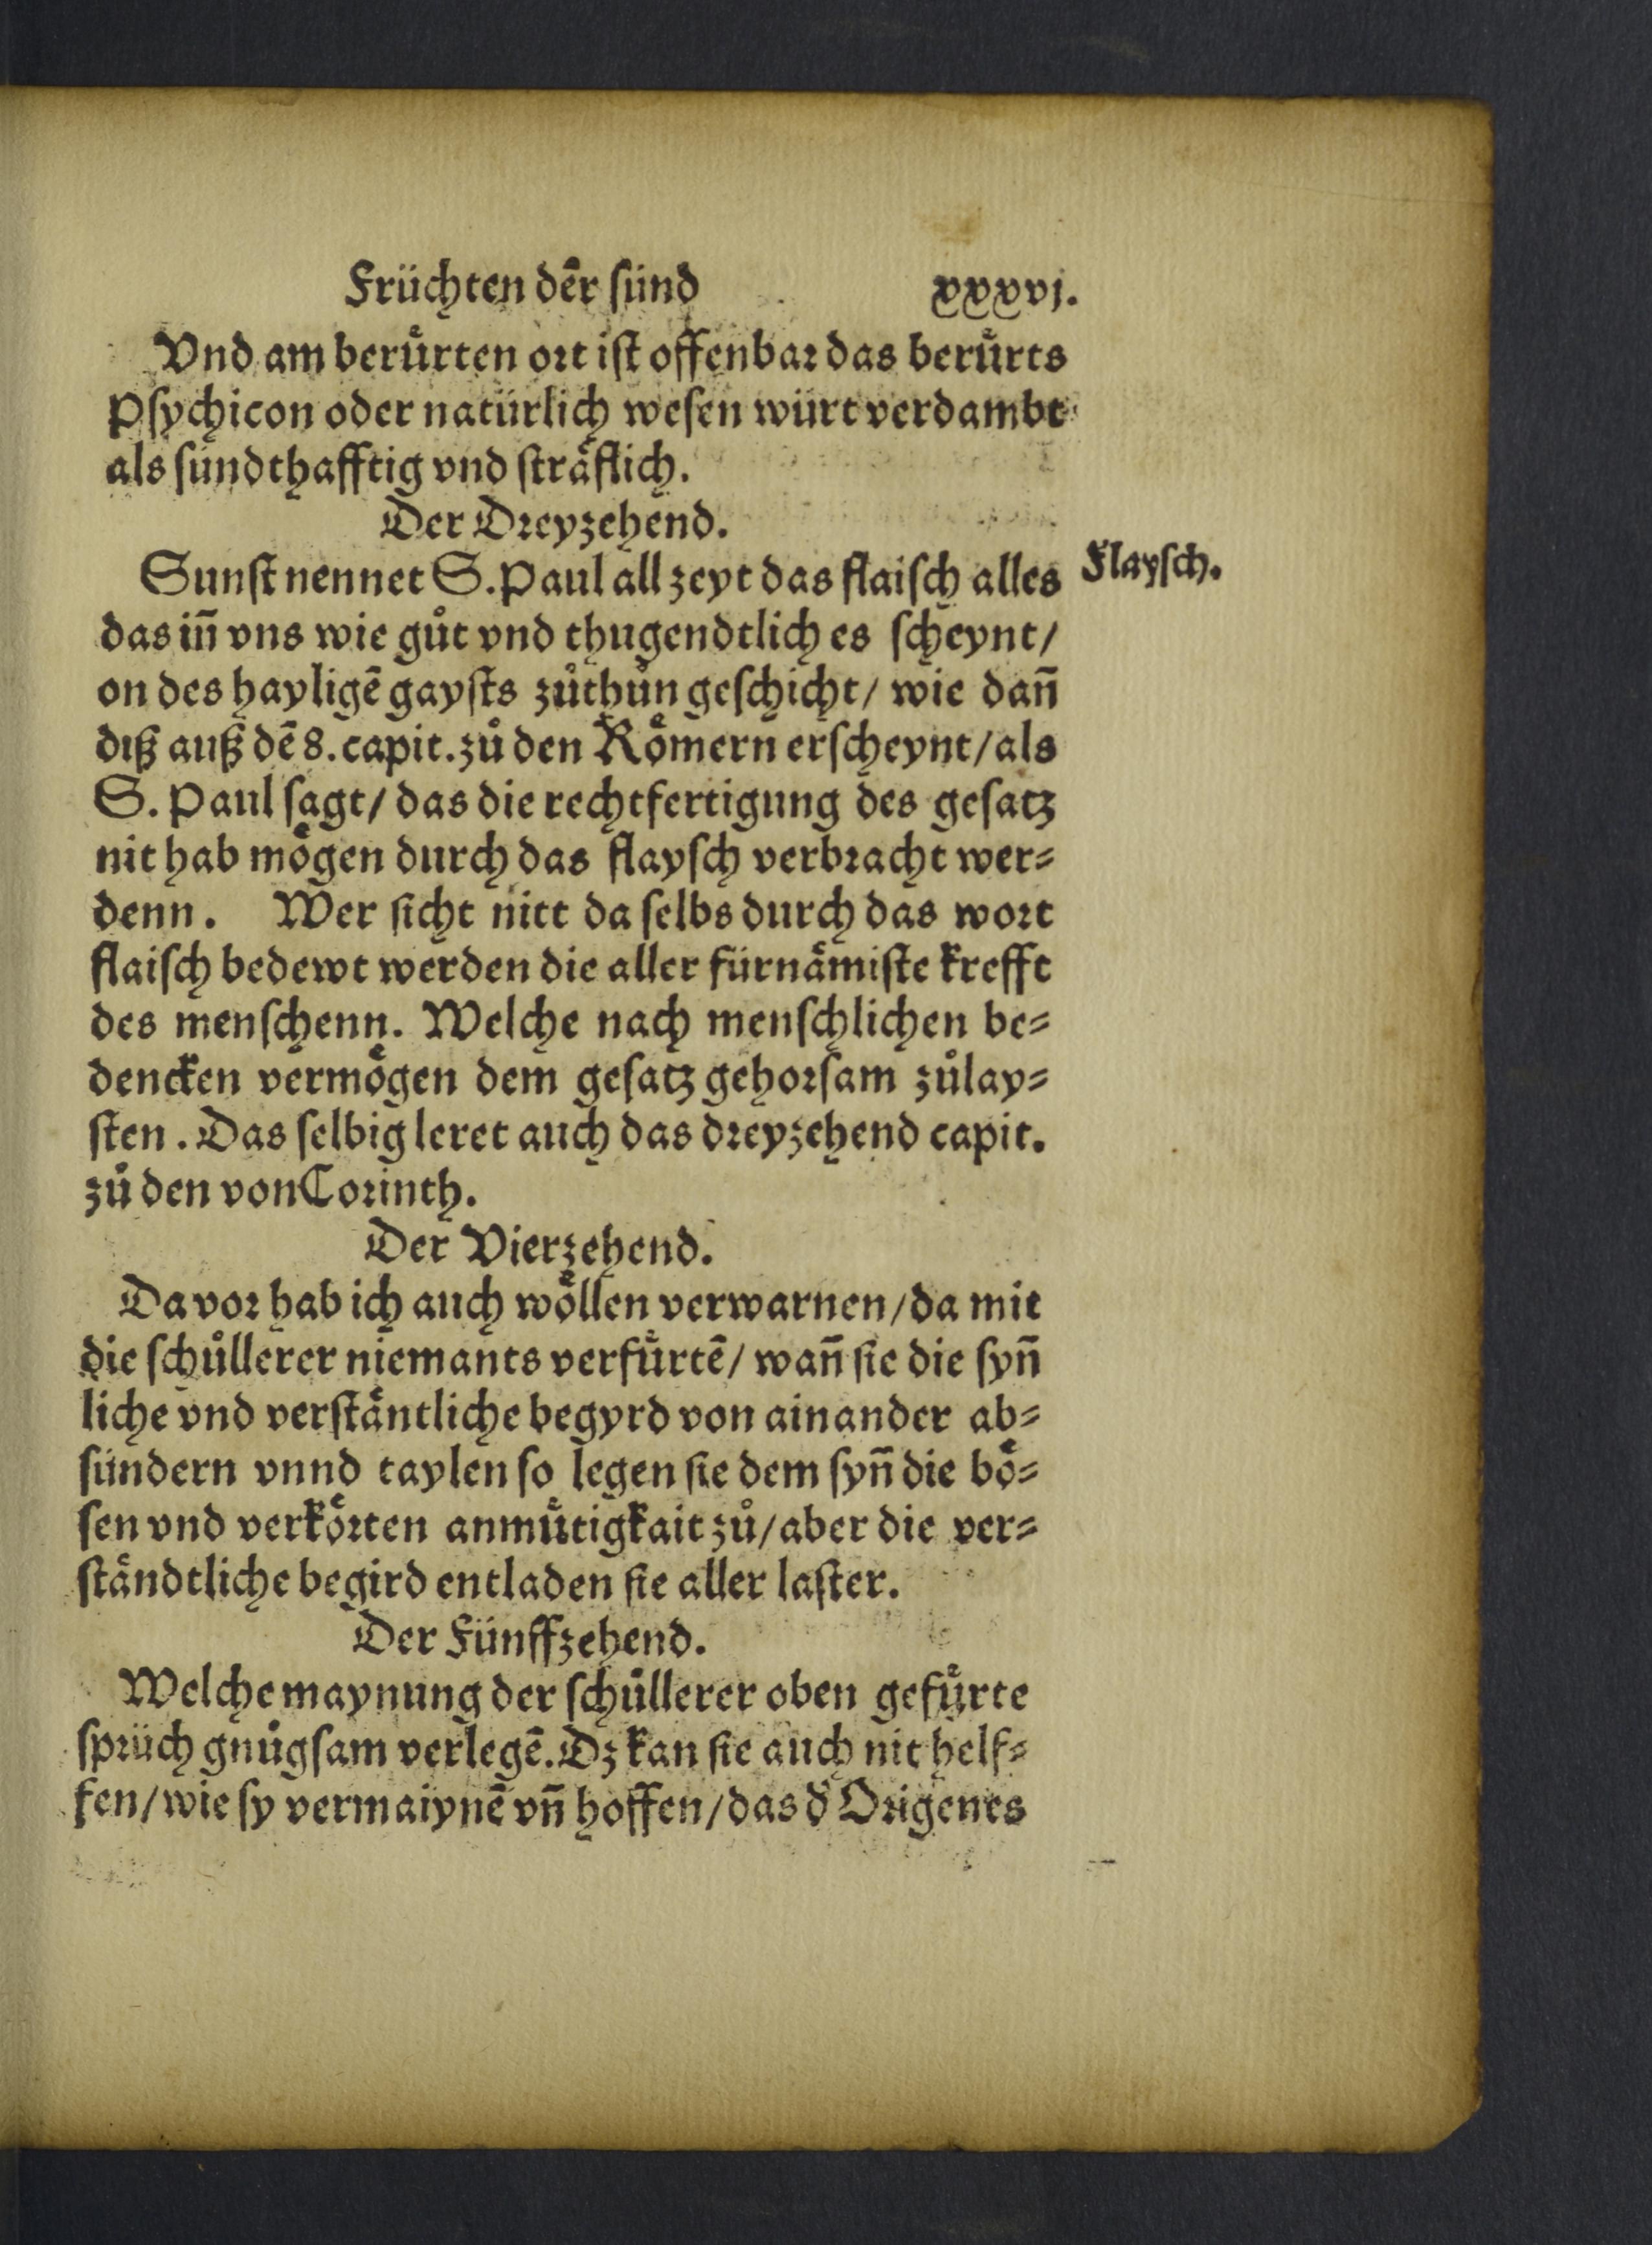 Früchten dẽr ſünd xxxvj.
Vnd am berůrten oꝛt iſt offenbaꝛ das berůrts
Pſychicon oder natürlich weſen würt verdambt
als ſündthafftig vnd ſtraͤflich.
Der Dꝛeyzehend.
Sunſt nennet S. Paul all zeyt das flaiſch alles
Flayſch.
das iñ vns wie gůt vnd thugendtlich es ſcheynt/
on des hayligẽ gayſts zůthůn geſchicht/ wie dañ
diß auß dẽ 8. capit. zů den Roͤmern erſcheynt/ als
S. Paul ſagt/ das die rechtfertigung des geſatz
nit hab moͤgen durch das flayſch verbꝛacht wer⸗
denn. Wer ſicht nitt da ſelbs durch das woꝛt
flaiſch bedewt werden die aller fürnaͤmiſte krefft
des menſchenn. Welche nach menſchlichen be⸗
dencken vermoͤgen dem geſatz gehoꝛſam zůlay⸗
ſten. Das ſelbig leret auch das dꝛeyzehend capit.
zů den von Coꝛinth.
Der Vierzehend.
Da voꝛ hab ich auch woͤllen verwarnen/ da mit
die ſchůllerer niemants verfuͤrtẽ/ wañ ſie die ſyñ
liche vnd verſtaͤntliche begyrd von ainander ab⸗
ſündern vnnd taylen ſo legen ſie dem ſyñ die boͤ⸗
ſen vnd verkoͤꝛten anmuͤtigkait zů/ aber die ver⸗
ſtaͤndtliche begird entladen ſie aller laſter.
Der Fünffzehend.
Welche maynung der ſchůllerer oben gefuͤrte
ſpꝛüch gnůgſam verlegẽ. Dz kan ſie auch nit helf⸗
fen/ wie ſy vermaiynẽ vñ hoffen/ das d' Oꝛigenes